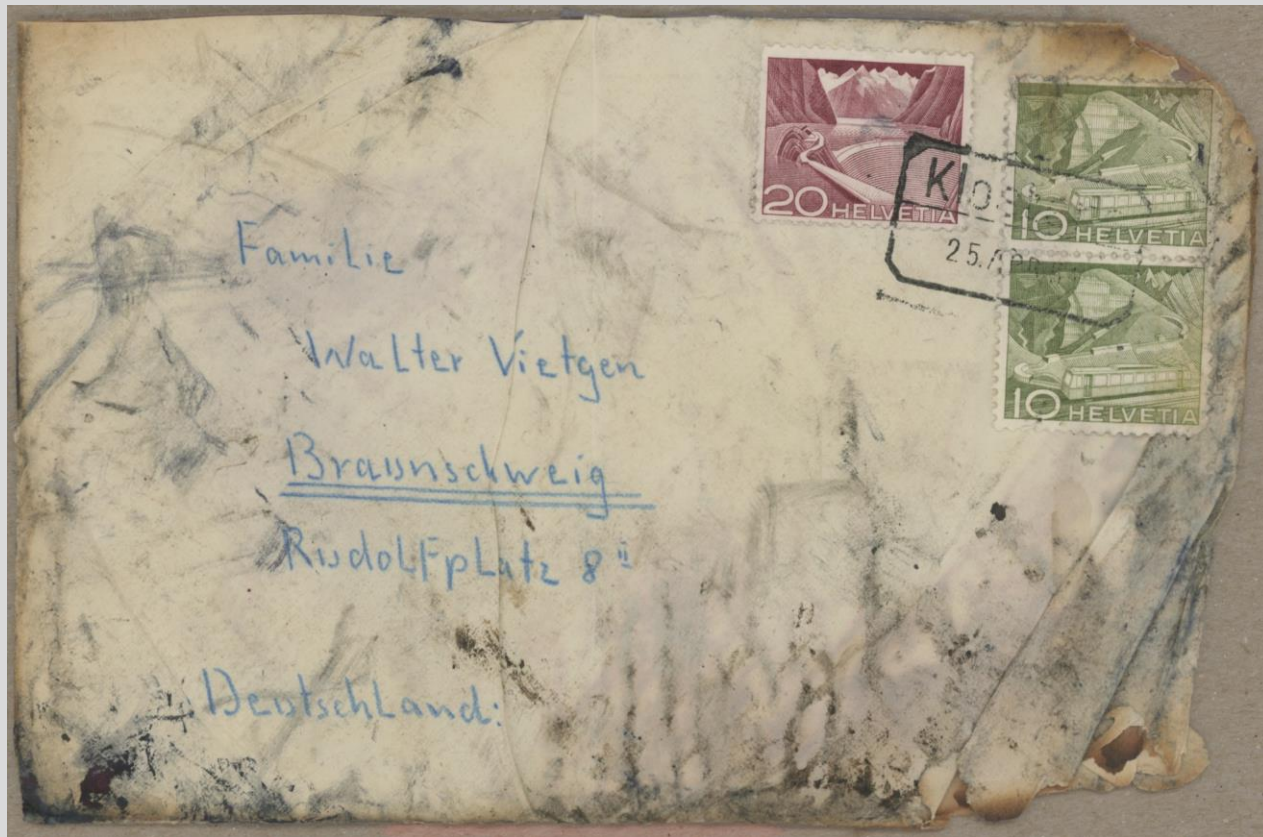 20 HELVETIA
10 HELVETIA
10 HELVETIA
25.
Familie
Walter Vietgen
Braunschweig
Rudolfplatz 8 II
Deutschland: